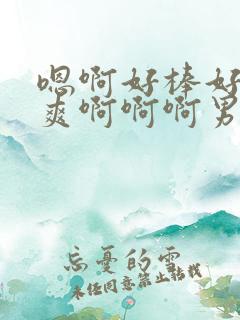 嗯啊好棒好
爽啊啊啊男
忘憂的雲
未经同意禁止转载